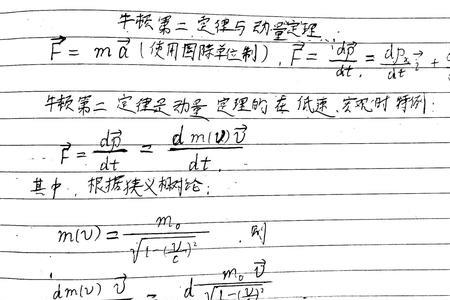 牛顿第二定律与动量定理
F⃗ = m a⃗ (使用国际单位制), F⃗ = dp⃗/dt = dpₓ/dt i⃗ +
牛顿第二定律是动量定理的在低速、宏观时特例:
F⃗ = dp⃗/dt = d m(v) v⃗ / dt.
其中,根据狭义相对论:
m(v) = m₀ / √(1-(v/c)²) . 则
d m(v) v⃗ = d m₀ v⃗ / √(1-(v/c)²)